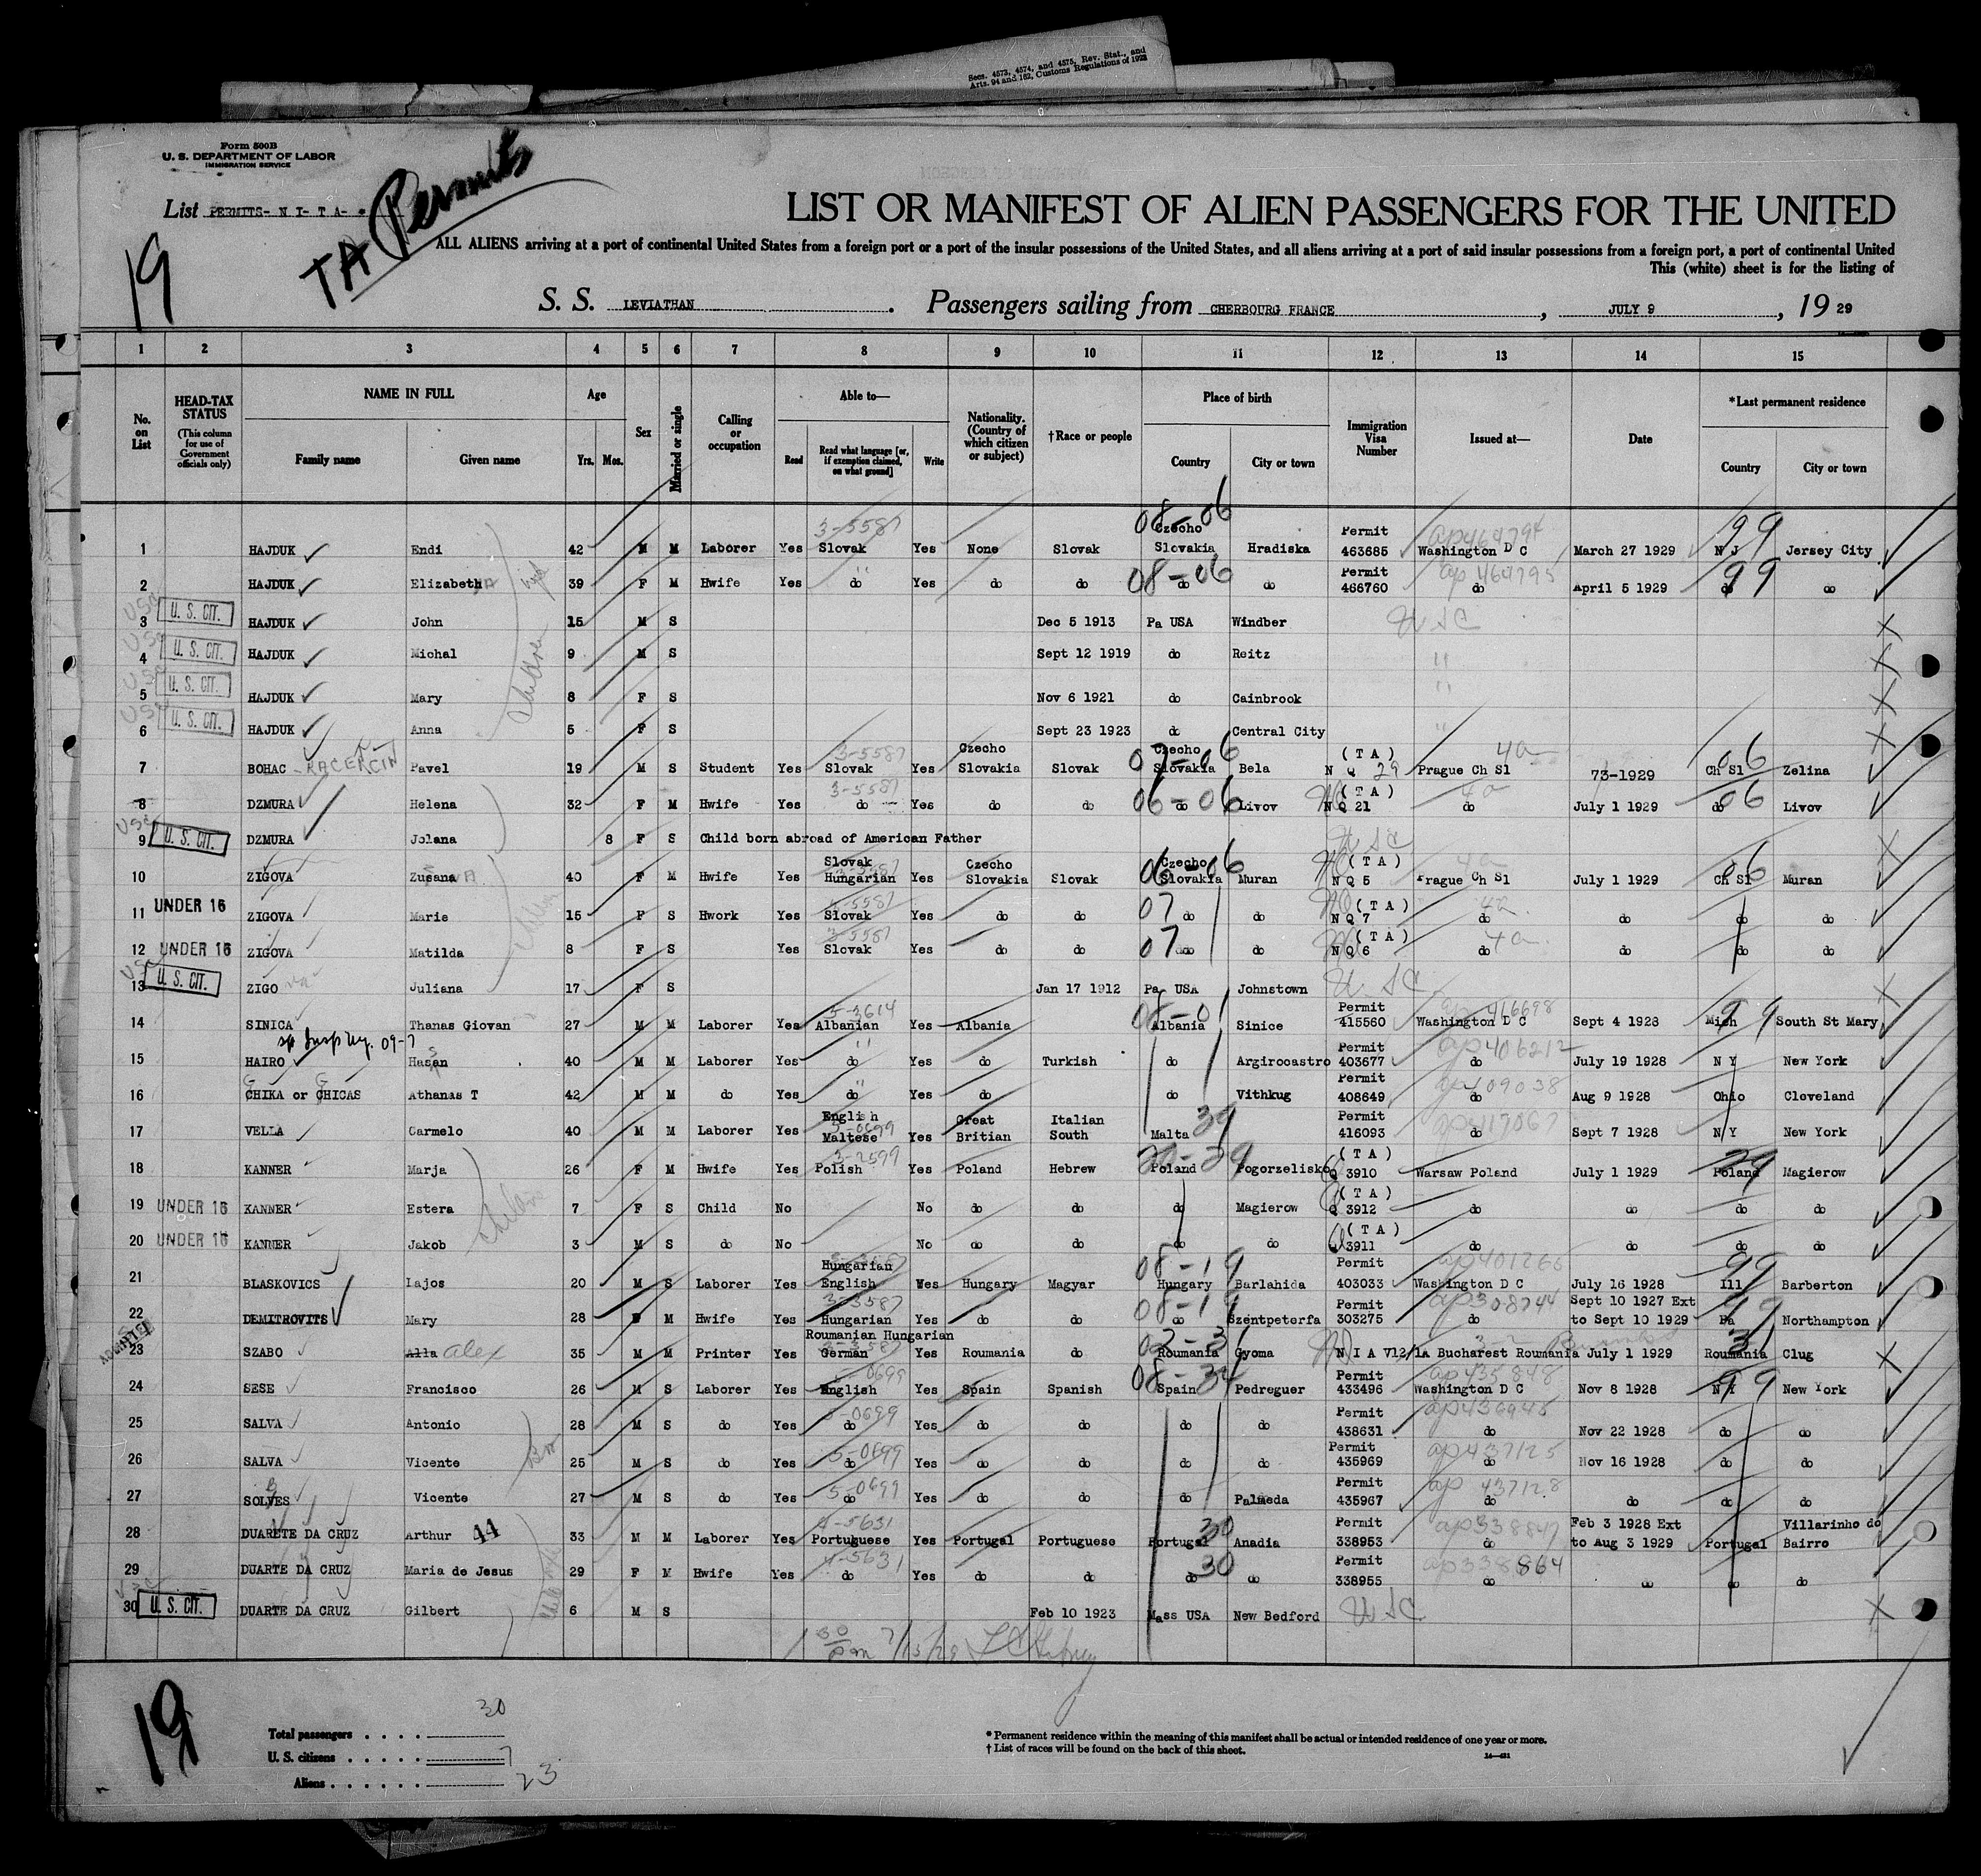 Secs. 4573, 4574, and 4575, Rev. Stat., and
Arts. 94 and 162, Customs Regulations of 1923
Form 500B
U. S. DEPARTMENT OF LABOR
IMMIGRATION SERVICE
List PERMITS- N I- T A-
TA Permits
19
LIST OR MANIFEST OF ALIEN PASSENGERS FOR THE UNITED
ALL ALIENS arriving at a port of continental United States from a foreign port or a port of the insular possessions of the United States, and all aliens arriving at a port of said insular possessions from a foreign port, a port of continental United
This (white) sheet is for the listing of
S. S. LEVIATHAN. Passengers sailing from CHERBOURG FRANCE, JULY 9, 19 29
1 2 3 4 5 6 7 8 9 10 11 12 13 14 15
No. on List
HEAD-TAX STATUS (This column for use of Government officials only)
NAME IN FULL Family name Given name
Age Yrs. Mos.
Sex
Married or single
Calling or occupation
Able to— Read Read what language [or, if exemption claimed, on what ground] Write
Nationality. (Country of which citizen or subject)
†Race or people
Place of birth Country City or town
Immigration Visa Number
Issued at—
Date
*Last permanent residence Country City or town
1 HAJDUK Endi 42 M M Laborer Yes Slovak 3-5587 Yes None Slovak Czecho Slovakia 08-06 Hradiska Permit 463685 Washington D C March 27 1929 N J 99 Jersey City
2 HAJDUK Elizabeth 39 F M Hwife Yes do Yes do do do 08-06 do Permit 466760 do ap 464795 April 5 1929 do 99 do
3 U. S. CIT. HAJDUK John 15 M S Dec 5 1913 Pa USA Windber USC
4 U. S. CIT. HAJDUK Michal 9 M S Sept 12 1919 do Reitz "
5 U. S. CIT. HAJDUK Mary 8 F S Nov 6 1921 do Cainbrook "
6 U. S. CIT. HAJDUK Anna 5 F S Sept 23 1923 do Central City "
7 BOHAC Pavel 19 M S Student Yes Slovak 3-5587 Yes Czecho Slovakia Slovak Czecho Slovakia 07-06 Bela (T A) N Q 29 Prague Ch Sl 73-1929 Ch Sl 06 Zelina
8 DZMURA Helena 32 F M Hwife Yes do 3-5587 Yes do do do 06-06 Livov (T A) N Q 21 do July 1 1929 do 06 Livov
9 U. S. CIT. DZMURA Jolana 8 F S Child born abroad of American Father USC
10 ZIGOVA Zusana 40 F M Hwife Yes Slovak Hungarian Yes Czecho Slovakia Slovak Czecho Slovakia 06-06 Muran (T A) N Q 5 Prague Ch Sl July 1 1929 Ch Sl 06 Muran
11 UNDER 16 ZIGOVA Marie 15 F S Hwork Yes Slovak Yes do do 07 do do (T A) N Q 7 do do do do
12 UNDER 16 ZIGOVA Matilda 8 F S Yes Slovak 3-5587 Yes do do 07 do do (T A) N Q 6 do do do do
13 U. S. CIT. ZIGO Juliana 17 F S Jan 17 1912 Pa USA Johnstown USC
14 SINICA Thanas Giovan 27 M M Laborer Yes Albanian 5-3614 Yes Albania Albania 08-01 Sinice Permit 415560 Washington D C Sept 4 1928 Mich 99 South St Mary
15 HAIRO Hasan 40 M M Laborer Yes do Yes do Turkish do Argirocastro Permit 403677 do ap406212 July 19 1928 N Y New York
16 CHIKA or CHICAS Athanas T 42 M M do Yes do Yes do do Vithkug Permit 408649 do ap409038 Aug 9 1928 Ohio Cleveland
17 VELLA Carmelo 40 M M Laborer Yes English Maltese Yes Great Britian Italian South Malta 39 Permit 416093 do ap419067 Sept 7 1928 N Y New York
18 KANNER Marja 26 F M Hwife Yes Polish 3-2599 Yes Poland Hebrew Poland Pogorzelisko (T A) Q 3910 Warsaw Poland July 1 1929 Poland 29 Magierow
19 UNDER 16 KANNER Estera 7 F S Child No No do do do Magierow (T A) Q 3912 do do do do
20 UNDER 16 KANNER Jakob 3 M S do No No do do do do (T A) Q 3911 do do do do
21 BLASKOVICS Lajos 20 M S Laborer Yes Hungarian English Wes Hungary Magyar Hungary 08-19 Barlahida Permit 403033 Washington D C July 16 1928 Ill 99 Barberton
22 DEMITROVITS Mary 28 F M Hwife Yes Hungarian 3-3587 Yes do do do 08-19 Szentpeterfa Permit 303275 do ap308744 Sept 10 1927 Ext to Sept 10 1929 Pa 99 Northampton
23 ADMITTED SZABO Alla Alex 35 M M Printer Yes Roumanian Hungarian German Yes Roumania do Roumania 03-31 Gyoma N I A V12/1A Bucharest Roumania July 1 1929 Roumania 31 Clug
24 SESE Francisco 26 M S Laborer Yes English Yes Spain Spanish Spain Pedreguer Permit 433496 Washington D C ap435848 Nov 8 1928 N Y 99 New York
25 SALVA Antonio 28 M S do Yes do 5-0699 Yes do do do do Permit 438631 do ap436945 Nov 22 1928 do do
26 SALVA Vicente 25 M S do Yes do 5-0699 Yes do do do do Permit 435969 do ap437125 Nov 16 1928 do do
27 SOLVES Vicente 27 M S do Yes do 5-0699 Yes do do do Palmeda Permit 435967 do ap 437128 do do do
28 DUARETE DA CRUZ Arthur 44 33 M M Laborer Yes Portuguese 4-5631 Yes Portugal Portuguese Portugal 30 Anadia Permit 338953 do ap338847 Feb 3 1928 Ext to Aug 3 1929 Portugal Villarinho do Bairro
29 DUARTE DA CRUZ Maria de Jesus 29 F M Hwife Yes do 4-5631 Yes do do do 30 do Permit 338955 do ap338864 do do do
30 U. S. CIT. DUARTE DA CRUZ Gilbert 6 M S Feb 10 1923 Mass USA New Bedford USC
19
Total passengers . . . . 30
U. S. citizens . . . . . 7
Aliens . . . . . . 23
* Permanent residence within the meaning of this manifest shall be actual or intended residence of one year or more.
† List of races will be found on the back of this sheet.